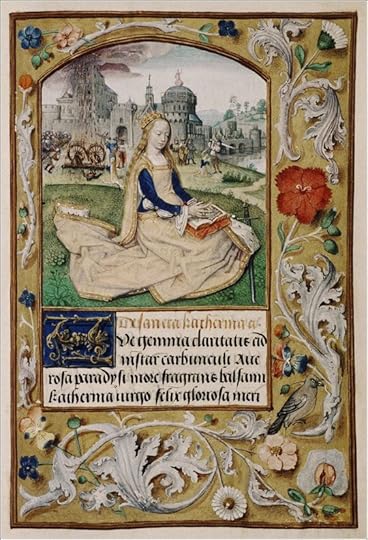 De sancta katherina a͞.
Ue gemma claritatis ad
instar carbunculi Aue
rosa paradysi more fragrans balsami
katherina uirgo felix gloriosa meri